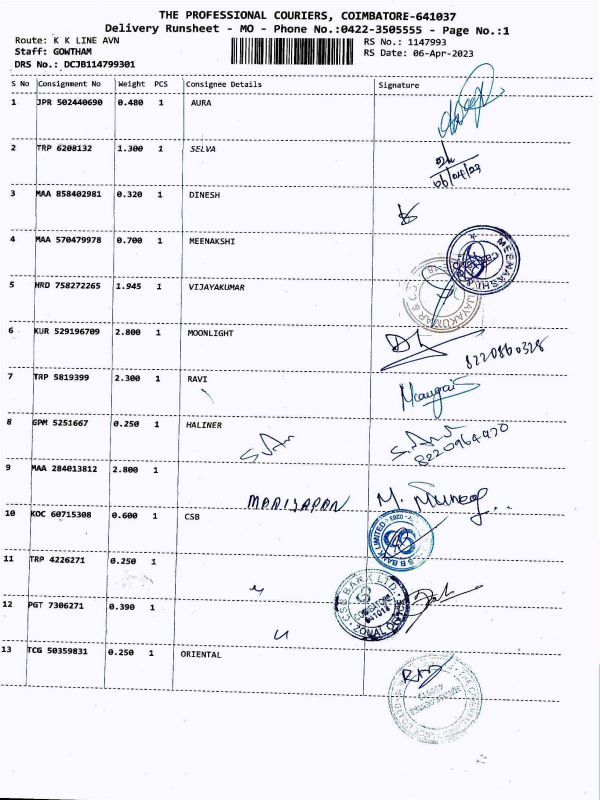 THE PROFESSIONAL COURIERS, COIMBATORE-641037
Delivery Runsheet - MO - Phone No.:0422-3505555 - Page No.:1
Route: K K LINE AVN
Staff: GOWTHAM
DRS No.: DCJB114799301
RS No.: 1147993
RS Date: 06-Apr-2023
S No Consignment No Weight PCS Consignee Details Signature
1 JPR 502440690 0.480 1 AURA
2 TRP 6208132 1.300 1 SELVA
06/04/23
3 MAA 858402981 0.320 1 DINESH
4 MAA 570479978 0.700 1 MEENAKSHI
5 HRD 758272265 1.945 1 VIJAYAKUMAR
6 KUR 529196709 2.800 1 MOONLIGHT
8220860328
7 TRP 5819399 2.300 1 RAVI
8 GPM 5251667 0.250 1 HALINER
8220964970
9 MAA 284013812 2.800 1
MARIYAPAN
10 KOC 60715308 0.600 1 CSB
11 TRP 4226271 0.250 1
CSB BANK LTD.
ZONAL OFFICE
12 PGT 7306271 0.390 1
13 TCG 50359831 0.250 1 ORIENTAL